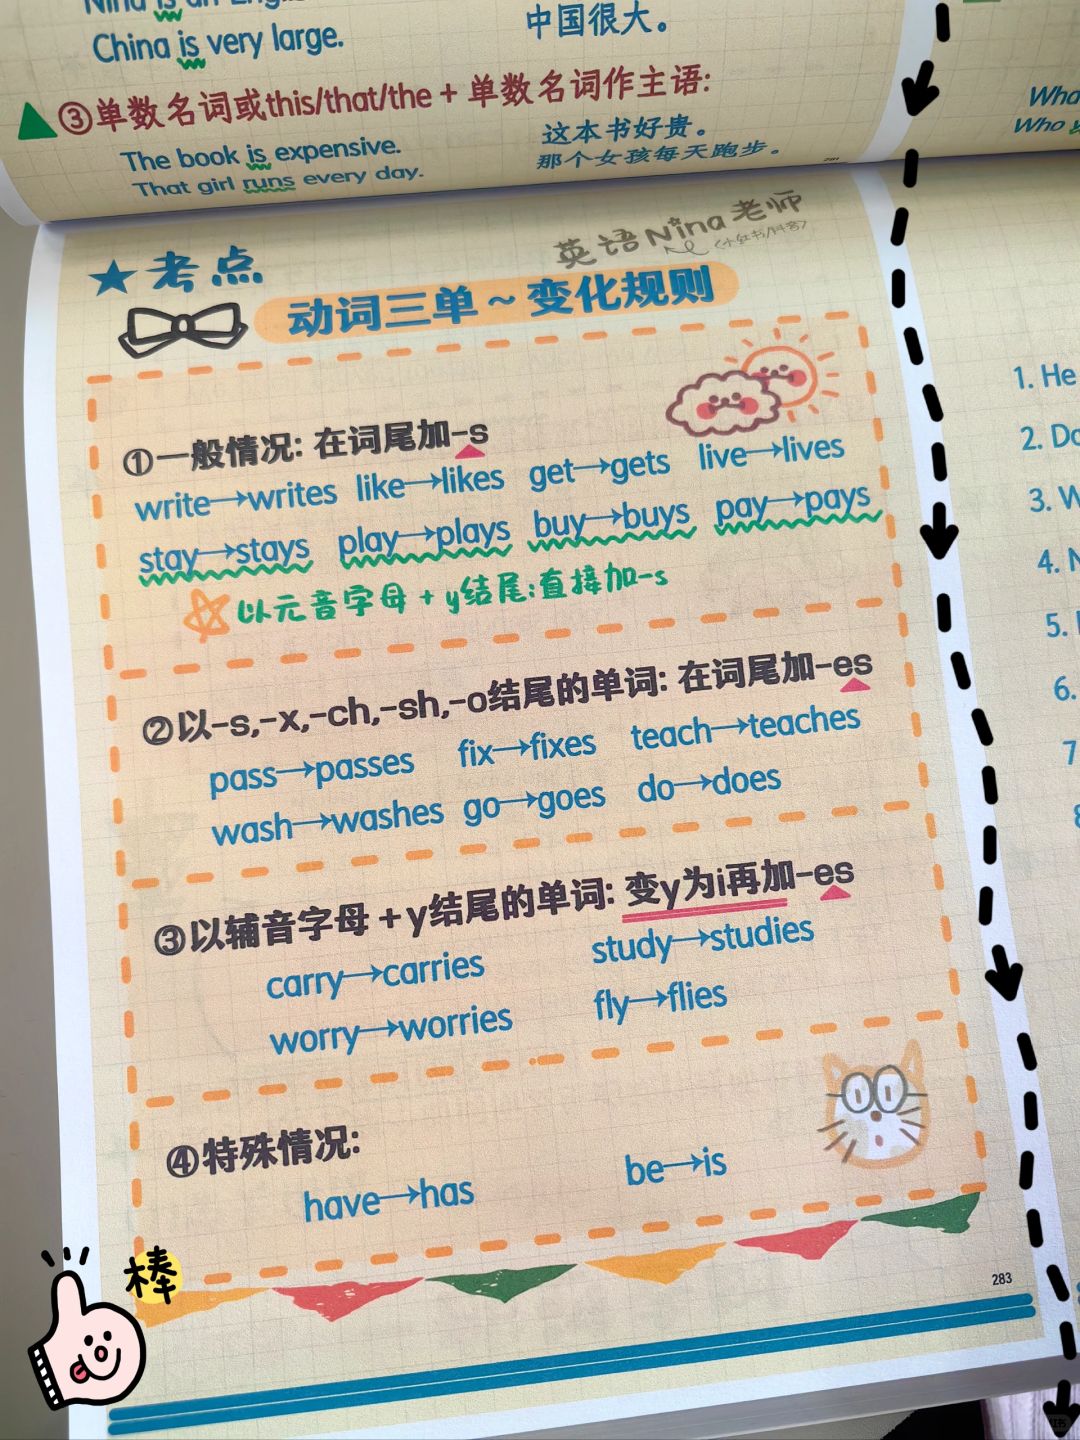 is an
China is very large.
中国很大。
③单数名词或this/that/the + 单数名词作主语:
The book is expensive.
这本书好贵。
That girl runs every day.
那个女孩每天跑步。
Who
英语Nina老师
(小红书/抖音)
★考点
动词三单~变化规则
①一般情况: 在词尾加-s
write→writes like→likes get→gets live→lives
stay→stays play→plays buy→buys pay→pays
以元音字母 + y结尾:直接加-s
②以-s,-x,-ch,-sh,-o结尾的单词: 在词尾加-es
pass→passes fix→fixes teach→teaches
wash→washes go→goes do→does
③以辅音字母 + y结尾的单词: 变y为i再加-es
carry→carries study→studies
worry→worries fly→flies
④特殊情况:
have→has be→is
棒
283
1. He
2.
3.
4.
5.
6.
7